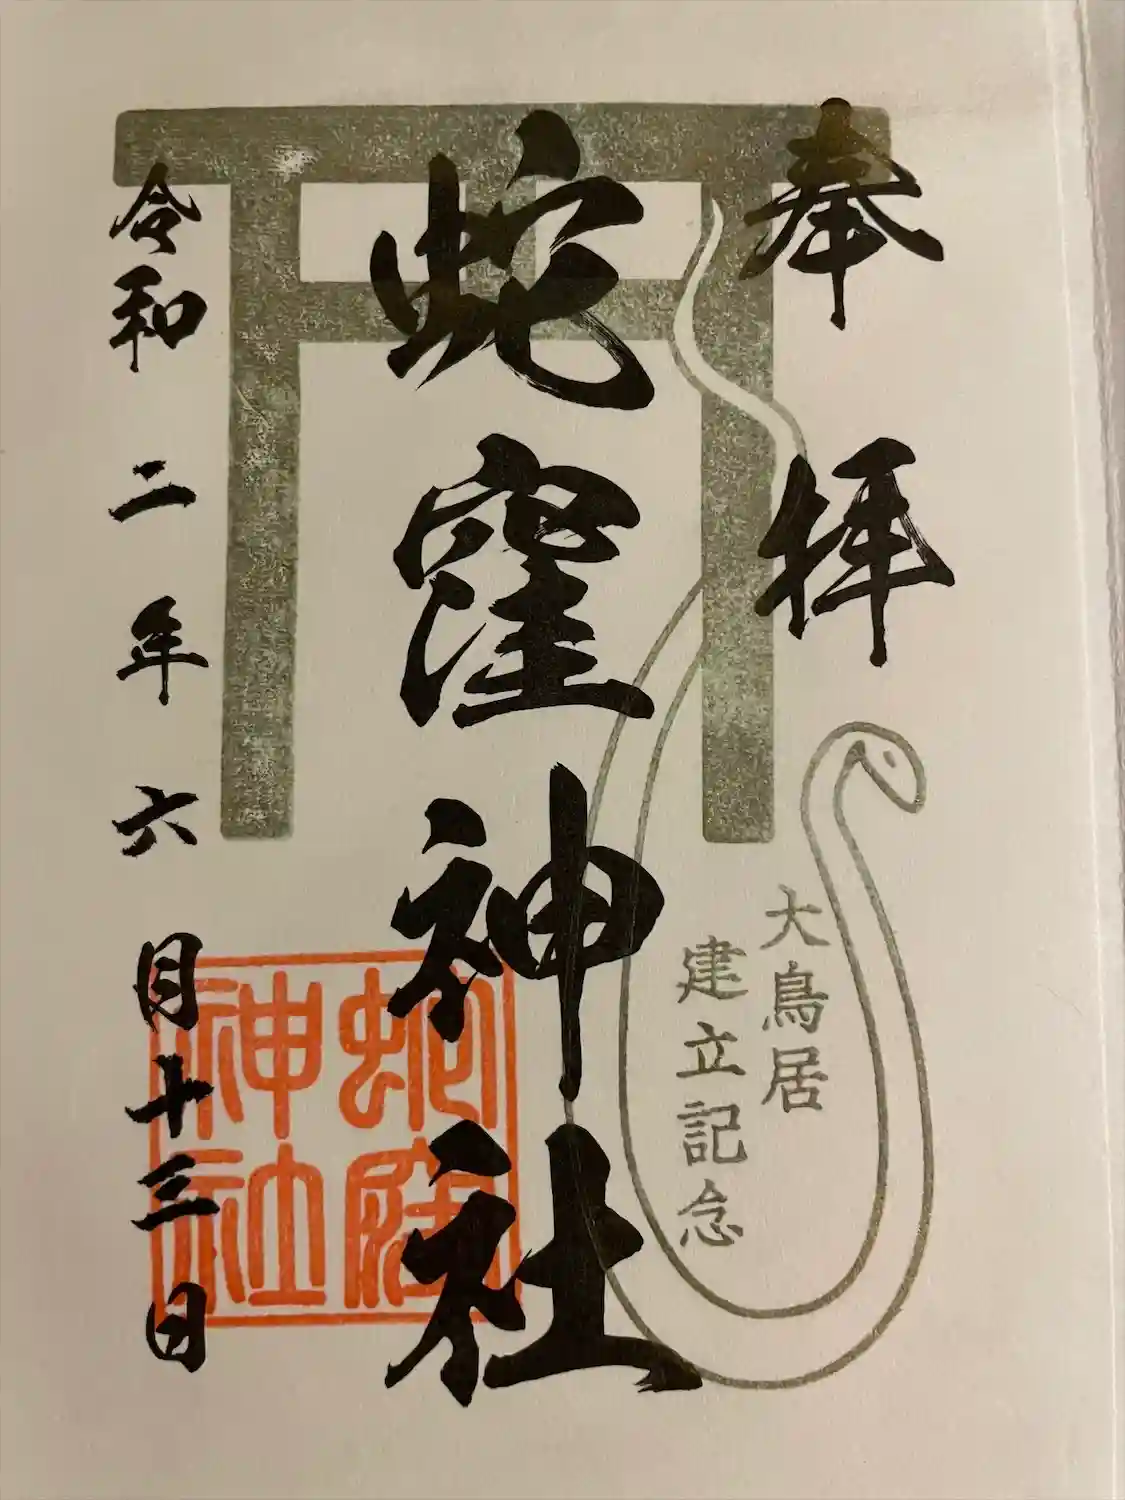 奉拝
大鳥居
建立記念
蛇窪神社
蛇窪
神社
令和二年六月十三日